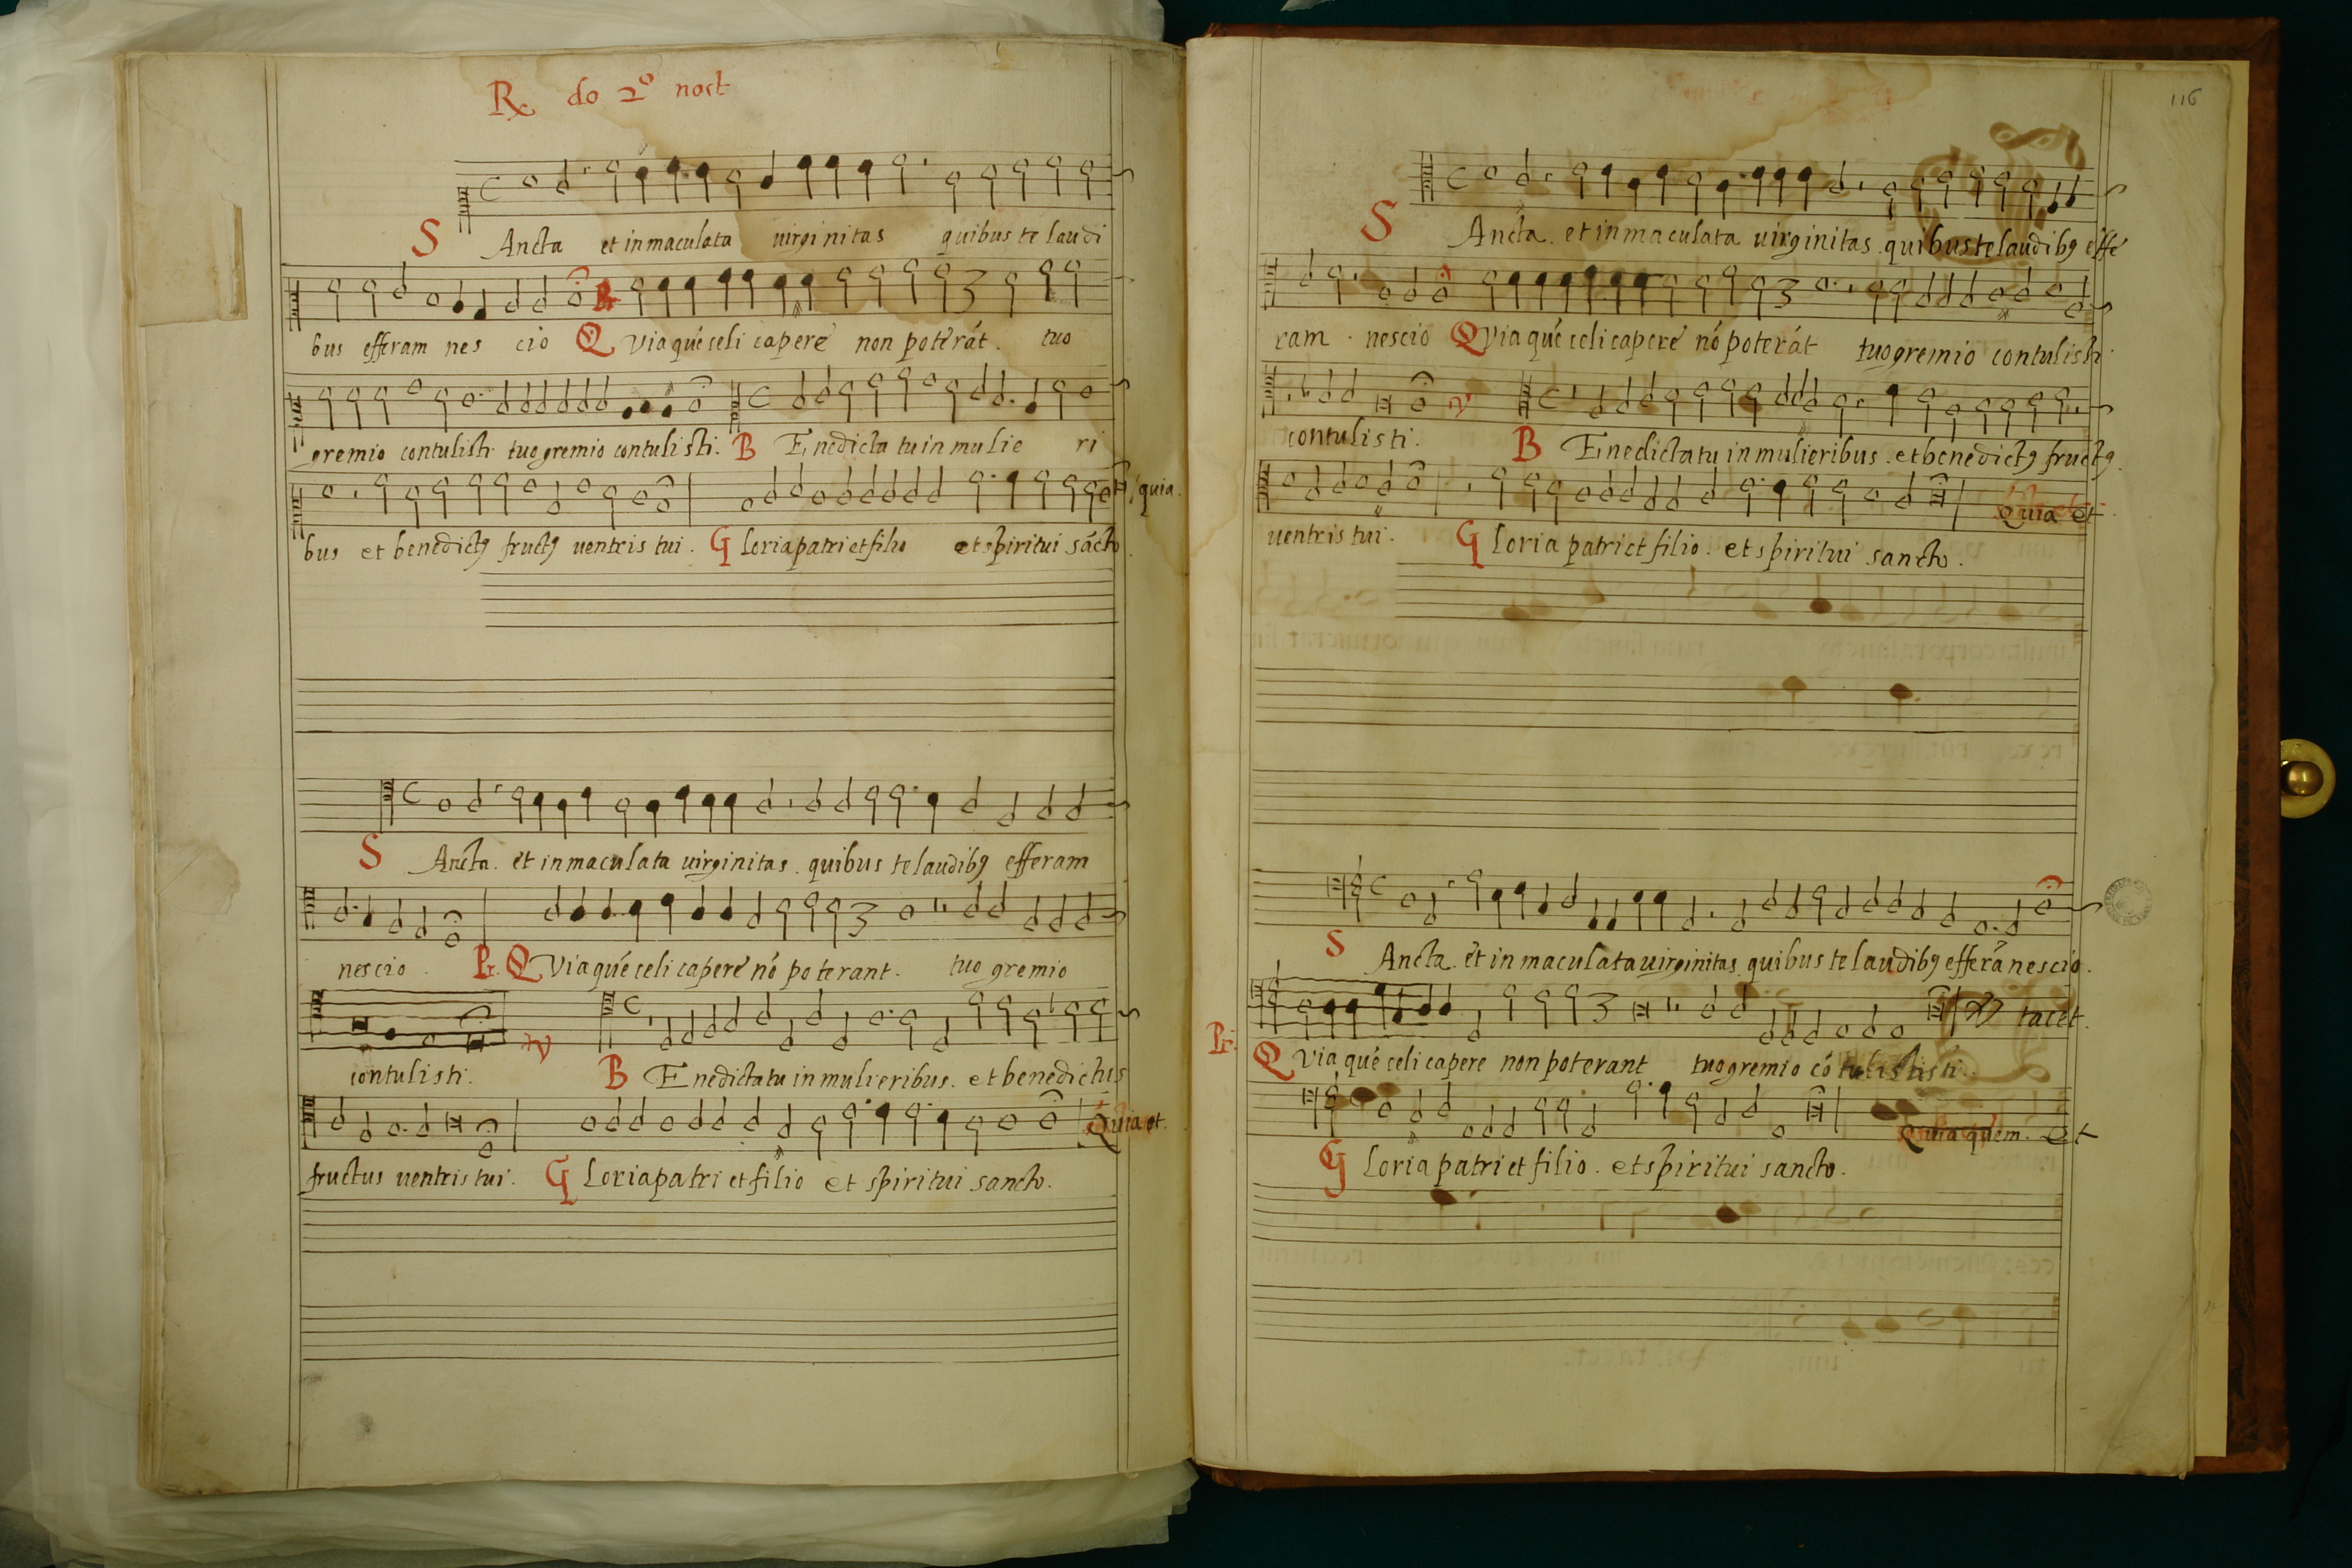 R do 2º noct
S Ancta et inmaculata uirginitas quibus te laudi
bus efferam nes cio Q Via que celi capere non poterāt. tuo
gremio contulisti tuo gremio contulisti. B Enedicta tu in mulie ri
quia.
bus et benedictꝰ fructꝰ uentris tui. G loria patri et filio et spiritui sācto.
S Ancta. et inmaculata uirginitas. quibus te laudibꝰ efferam
nescio. Pr. Q Via que celi capere nō poterant. tuo gremio
contulisti. V B Enedicta tu in mulieribus. et benedictus
Quia et.
fructus uentris tui. G loria patri et filio et spiritui sancto.
116
S Ancta. et inmaculata uirginitas. quibus te laudibꝰ effe
ram. nescio Q Via que celi capere nō poterāt tuo gremio contulisti.
contulisti. V B Enedicta tu in mulieribus. et benedictꝰ fructꝰ.
Quia et
uentris tui. G loria patri et filio. et spiritui sancto.
S Ancta. et inmaculata uirginitas quibus te laudibꝰ efferā nescio.
tacet.
Pr. Q Via que celi capere non poterant tuo gremio cōtulististi.
Quia quem. et
G loria patri et filio. et spiritui sancto.